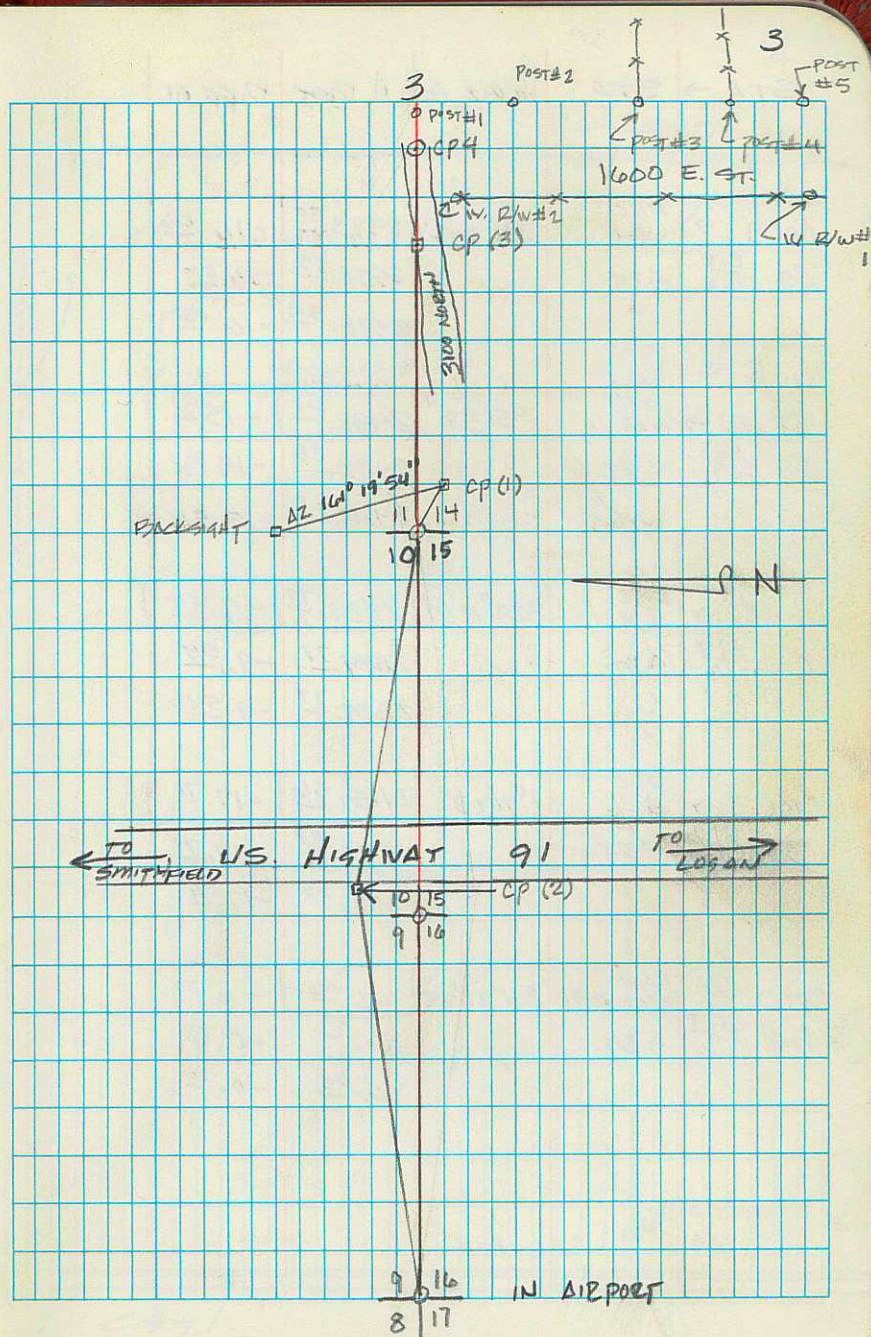 3
3
POST #2
POST #5
POST #1
CP 4
POST #3
POST #4
1600 E. ST.
W. R/W #2
W R/W #1
CP (3)
3100 NORTH
AZ 161° 19' 54"
CP (1)
BACKSIGHT
11 14
10 15
N
TO SMITHFIELD
U.S. HIGHWAY 91
TO LOGAN
CP (2)
10 15
9 16
9 16
8 17
IN AIRPORT